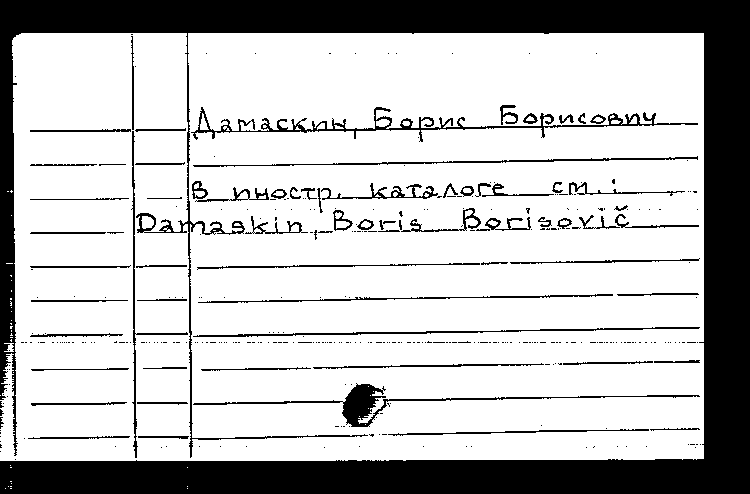 Дамаскин, Борис Борисович
В иностр. каталоге см.:
Damaskin, Boris Borisovič